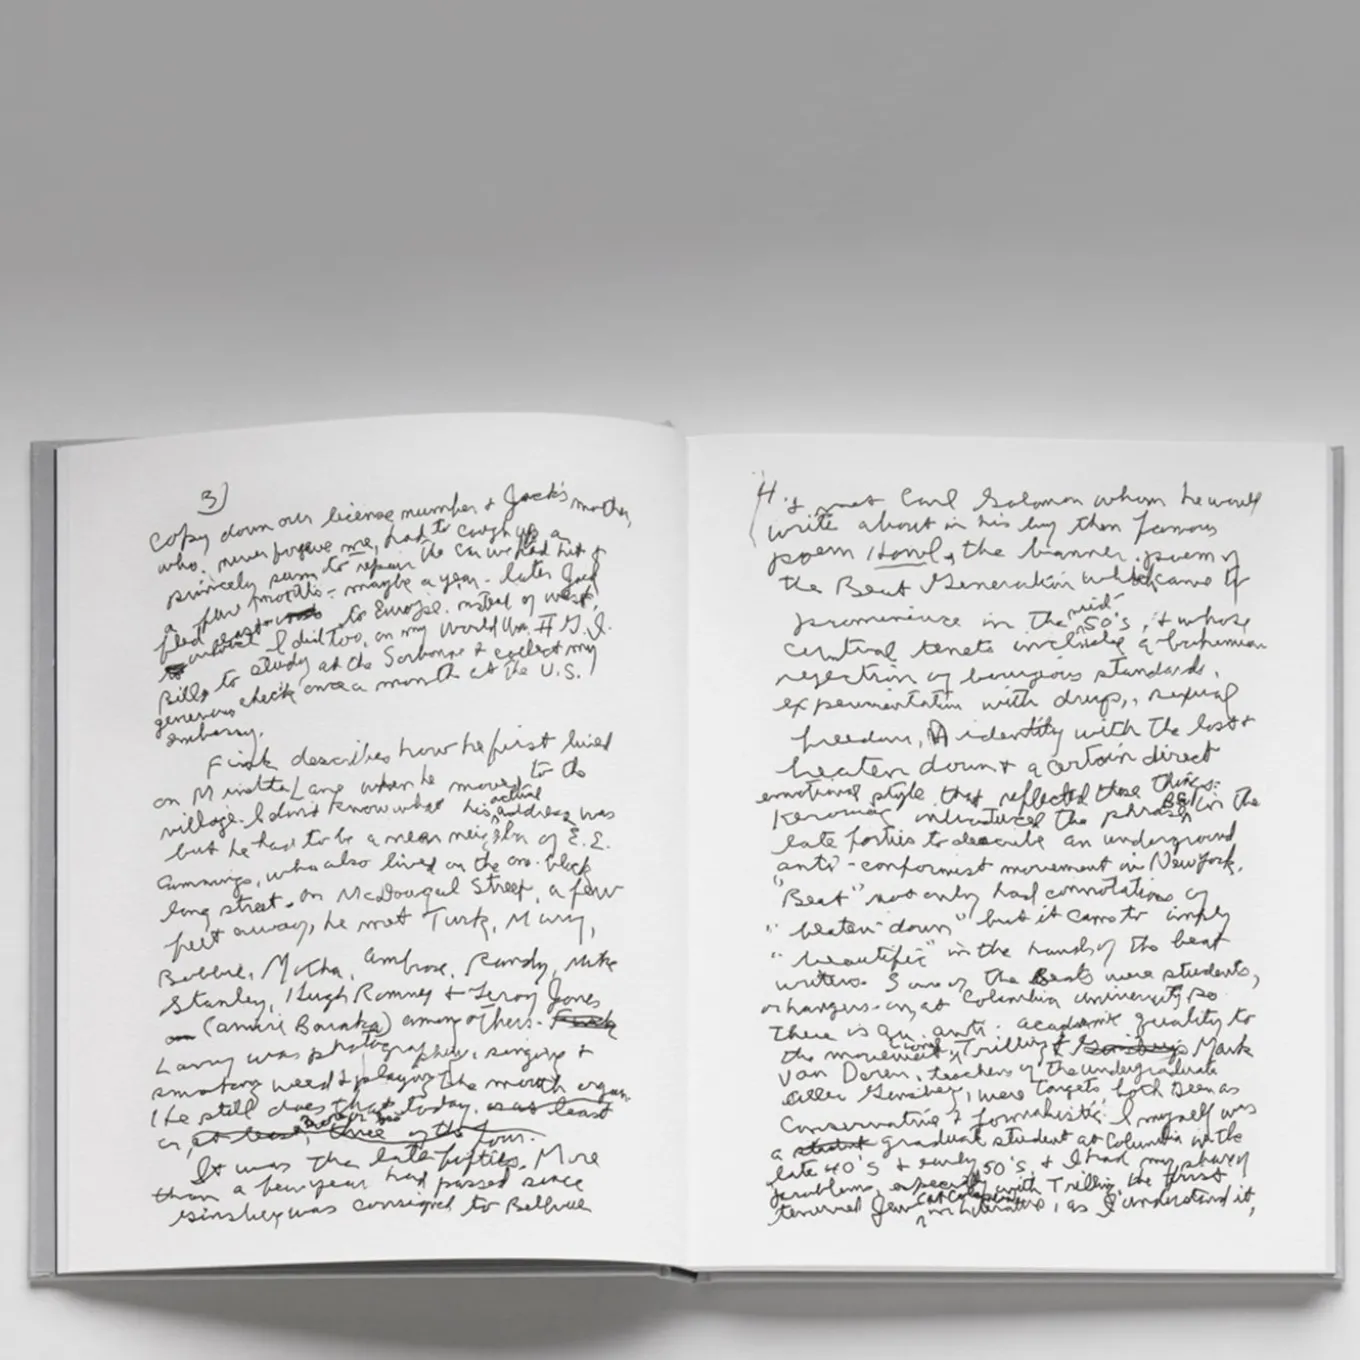 3)
copy down our license number & Jack's mother,
who never forgave me, had to cough up a
princely sum to repair the car we had hit &
a few months - maybe a year - later Jack
fled to Europe. instead of west,
I did too, on my World War II G.I.
Bills to study at the Sorbonne & collect my
generous check once a month at the U.S.
embassy.
Fink describes how he first lived
on Minetta Lane when he moved to the
village. I don't know what his actual address was
but he had to be a near neighbor of E.E.
Cummings, who also lived on the one-block
long street. On McDougal Street, a few
feet away, he met Turk, Mary,
Bobbie, Motha, Ambrose, Randy, Mike
Stanley, Hugh Romney & Leroy Jones
(Amiri Baraka) among others.
Larry was photographing, singing &
smoking weed & playing the mouth organ
(he still does that today,
or, three of the four.
It was the late fifties. More
than a few years had passed since
Ginsberg was consigned to Bellevue
4
& met Carl Solomon whom he would
write about in his by then famous
poem Howl, the banner poem of
the Beat Generation which came to
prominence in the mid-50's, & whose
central tenets include a bohemian
rejection of bourgeois standards,
experimentation with drugs, sexual
freedom, identity with the lost &
beaten down & a certain direct
emotional style that reflected these things.
Kerouac introduced the phrase in the
late forties to describe an underground
anti-conformist movement in New York.
"Beat" not only had connotations of
"beaten down" but it came to imply
"beautific" in the hands of the beat
writers. Some of the Beats were students,
or hangers-on, at Columbia university so
there is an anti-academic quality to
the movement. Trilling & Ginsbergs Mark
Van Doren, teachers of the undergraduate
Allen Ginsberg, were targets both seen as
conservative & formalistic. I myself was
a student graduate student at Columbia in the
late 40's & early 50's, & I had my share of
problems, especially with Trilling, the first
tenured Jew in literature, as I understand it,